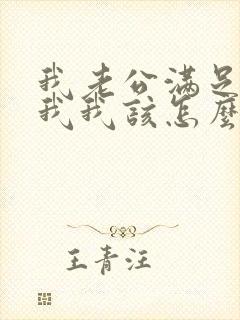 我老公满足
我我该怎麼
王青汪